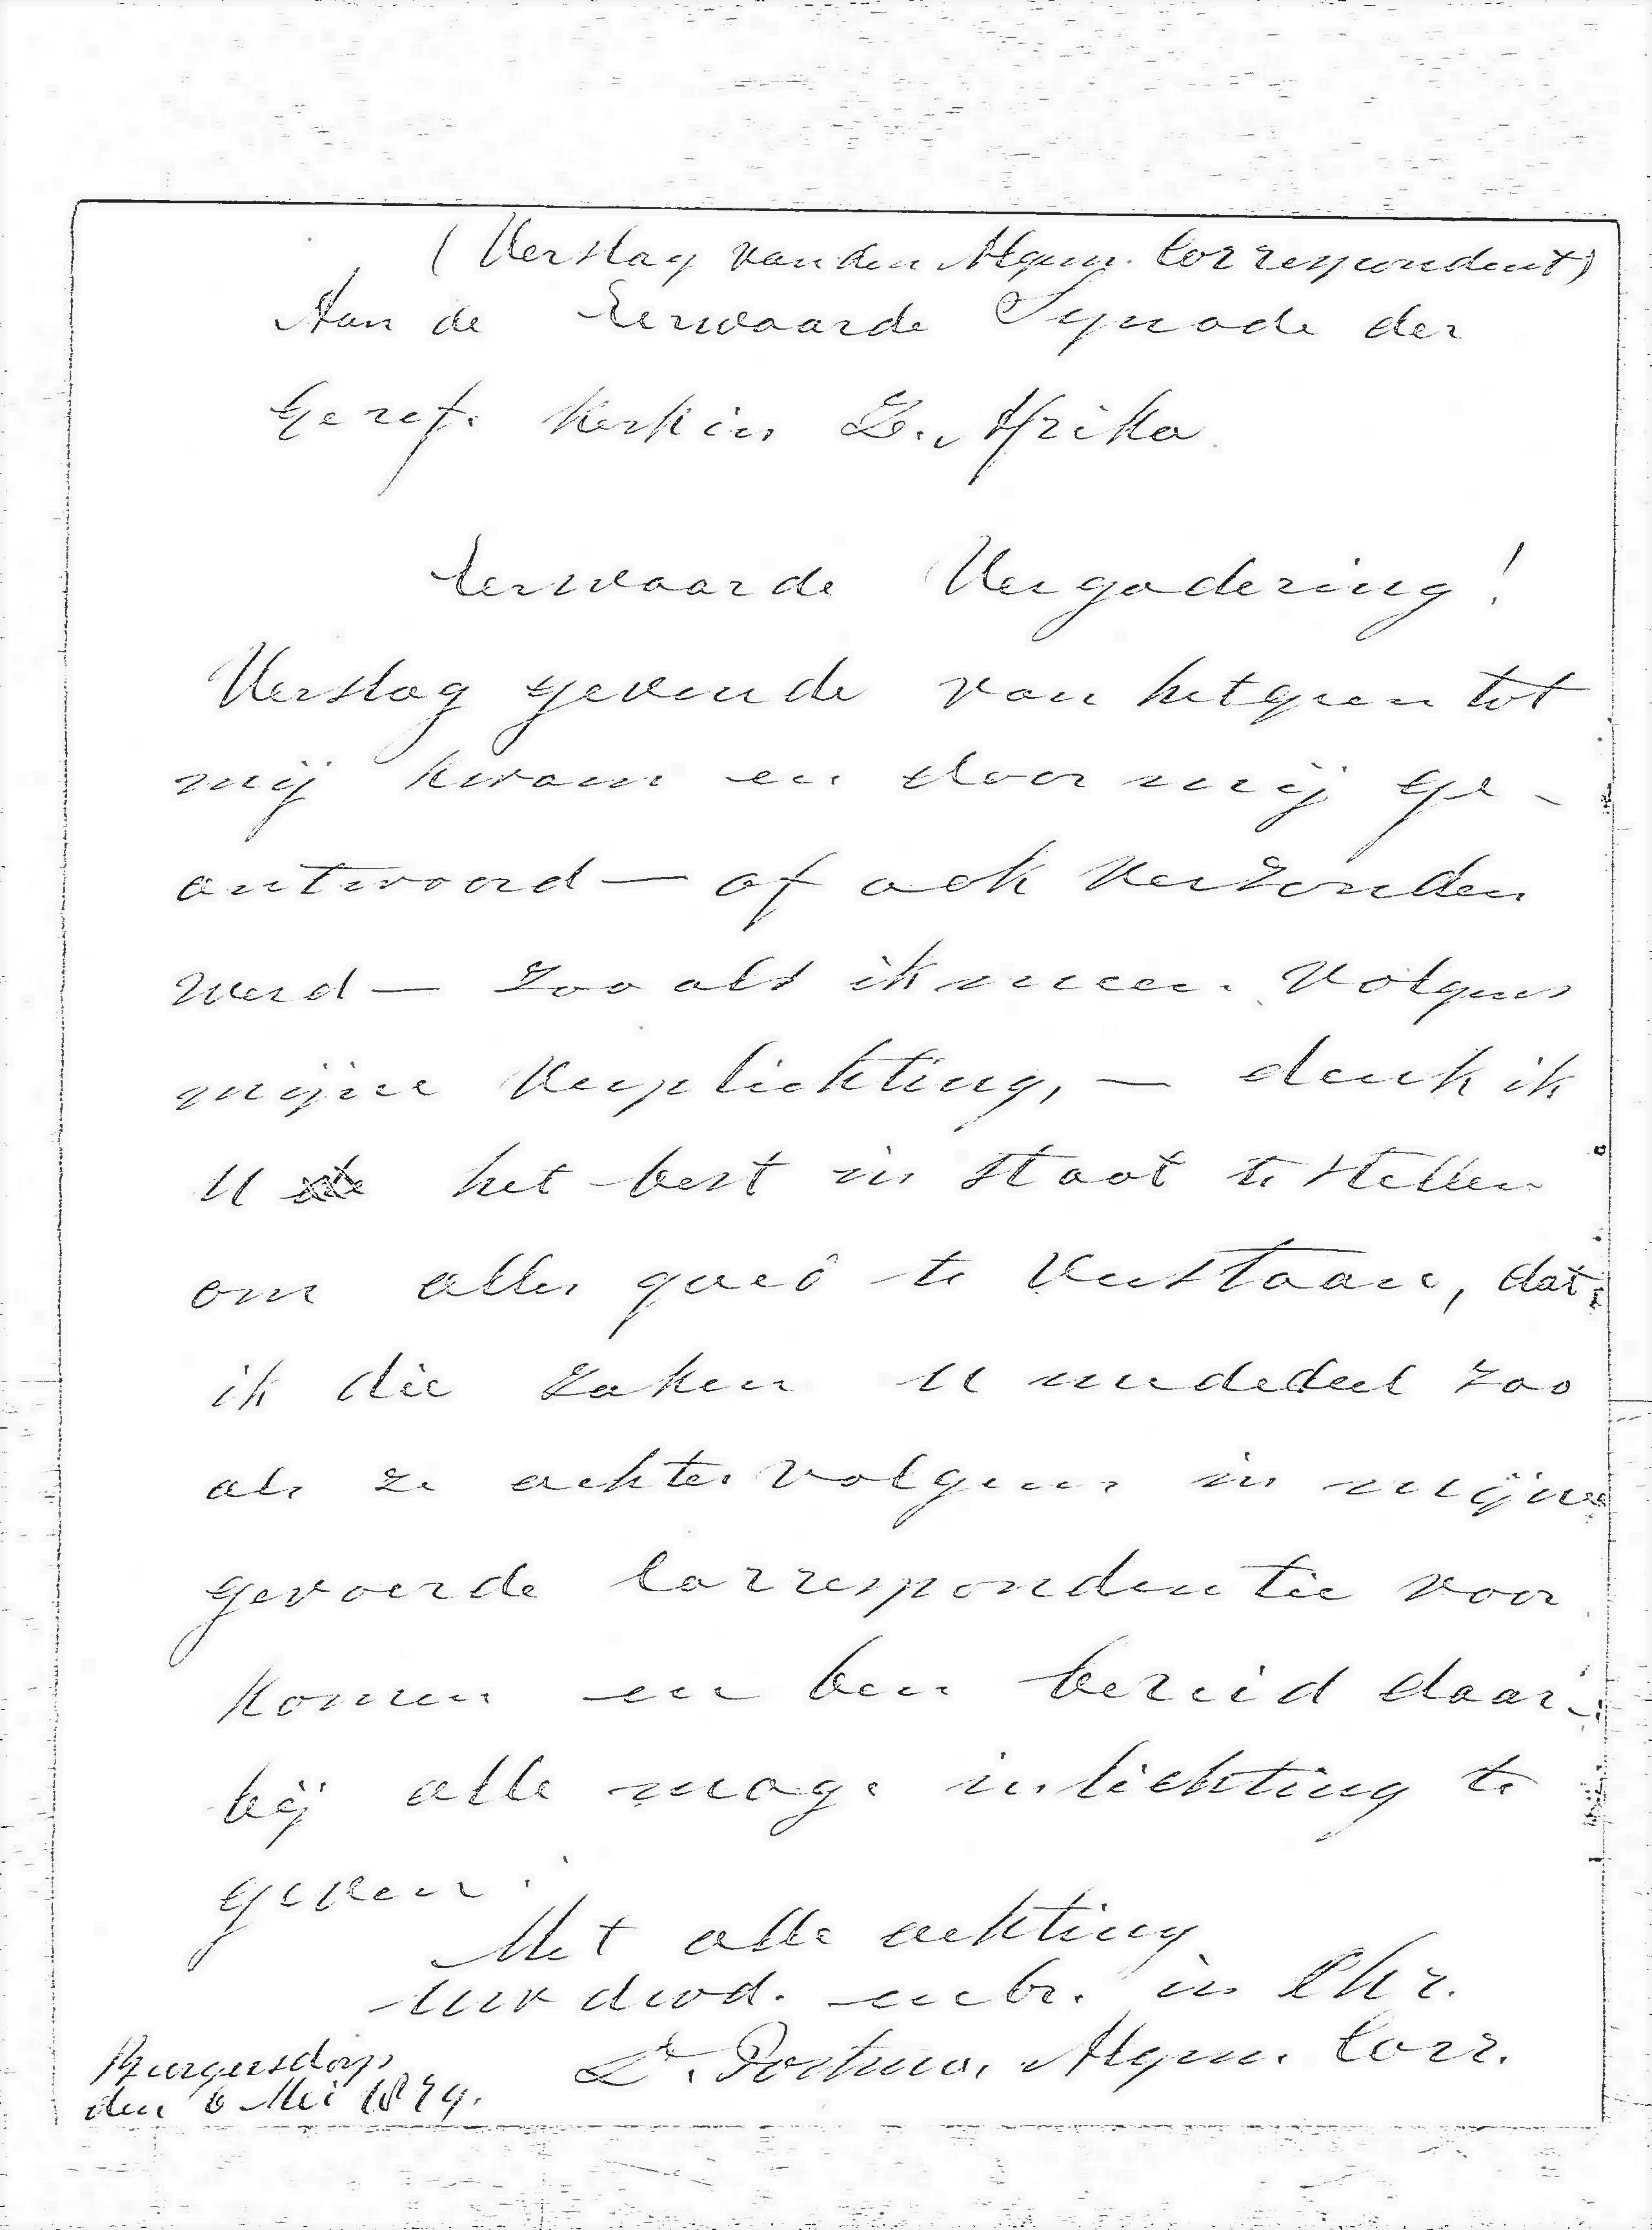 (Verslag van den Algem. Correspondent)
Aan de Eerwaarde Synode der
Geref. Kerk in Z. Afrika.
Eerwaarde Vergadering!
Verslag gevende van hetgeen tot
mij kwam en door mij ge-
antwoord — of ook verzonden
werd — zoo als ik meen. Volgens
mijne verplichting, — denk ik
U het best in staat te stellen
om alles goed te verstaan, dat
ik die zaken U mededeel zoo
als ze achtervolgens in mijne
gevoerde Correspondentie voor
komen en ben bereid daar-
bij alle mog. inlichting te
geven.
Met alle achting
Uw dwd. en br. in Chr.
Ds. Postma, Algem. Corr.
Burgersdorp
den 6 Mei 1879.